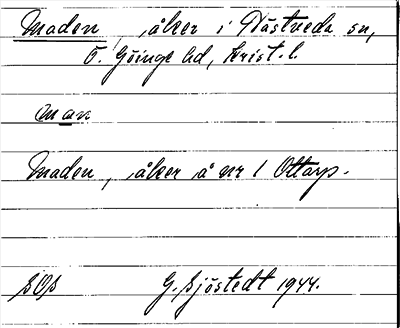 Maden, åker i Hästveda sn,
Ö. Göinge hd, Krist. l.
man
Maden, åker å nr 1 Ottarp.
SOS
G. Sjöstedt 1944.